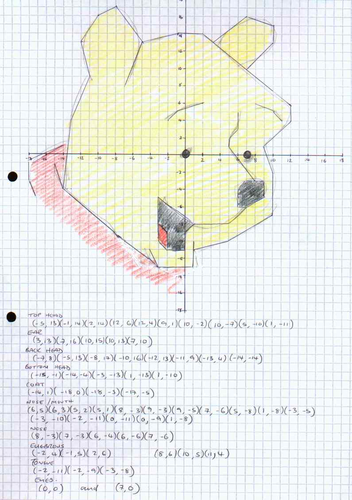 TOP HEAD
(-5, 13)(-1, 14)(2, 14)(12, 6)(12, 4)(9, 1)(10, -2)(10, -7)(5, -10)(1, -11)
EAR
(3, 13)(7, 16)(10, 15)(10, 13)(7, 10)
BACK HEAD
(-7, 8)(-5, 13)(-8, 17)(-10, 16)(-12, 13)(-11, 9)(-13, 6)(-14, -4)
BOTTOM HEAD
(-3, -13)(1, -13)(1, -10)
COAT
(-14, 1)(-18, 0)(-18, -3)(-14, -5)
NOSE / MOUTH
(-3, -10)(-2, -11)(0, -11)(0, -9)(1, -8)
NOSE
(8, -3)(7, -3)(6, -4)(6, -6)(7, -6)
EYEBROWS
(-2, 4)(-1, 5)(2, 6) (8, 6)(10, 5)(11, 4)
TONGUE
(-2, -11)(-2, -9)(-3, -8)
EYES.
(0, 0) and (7, 0)